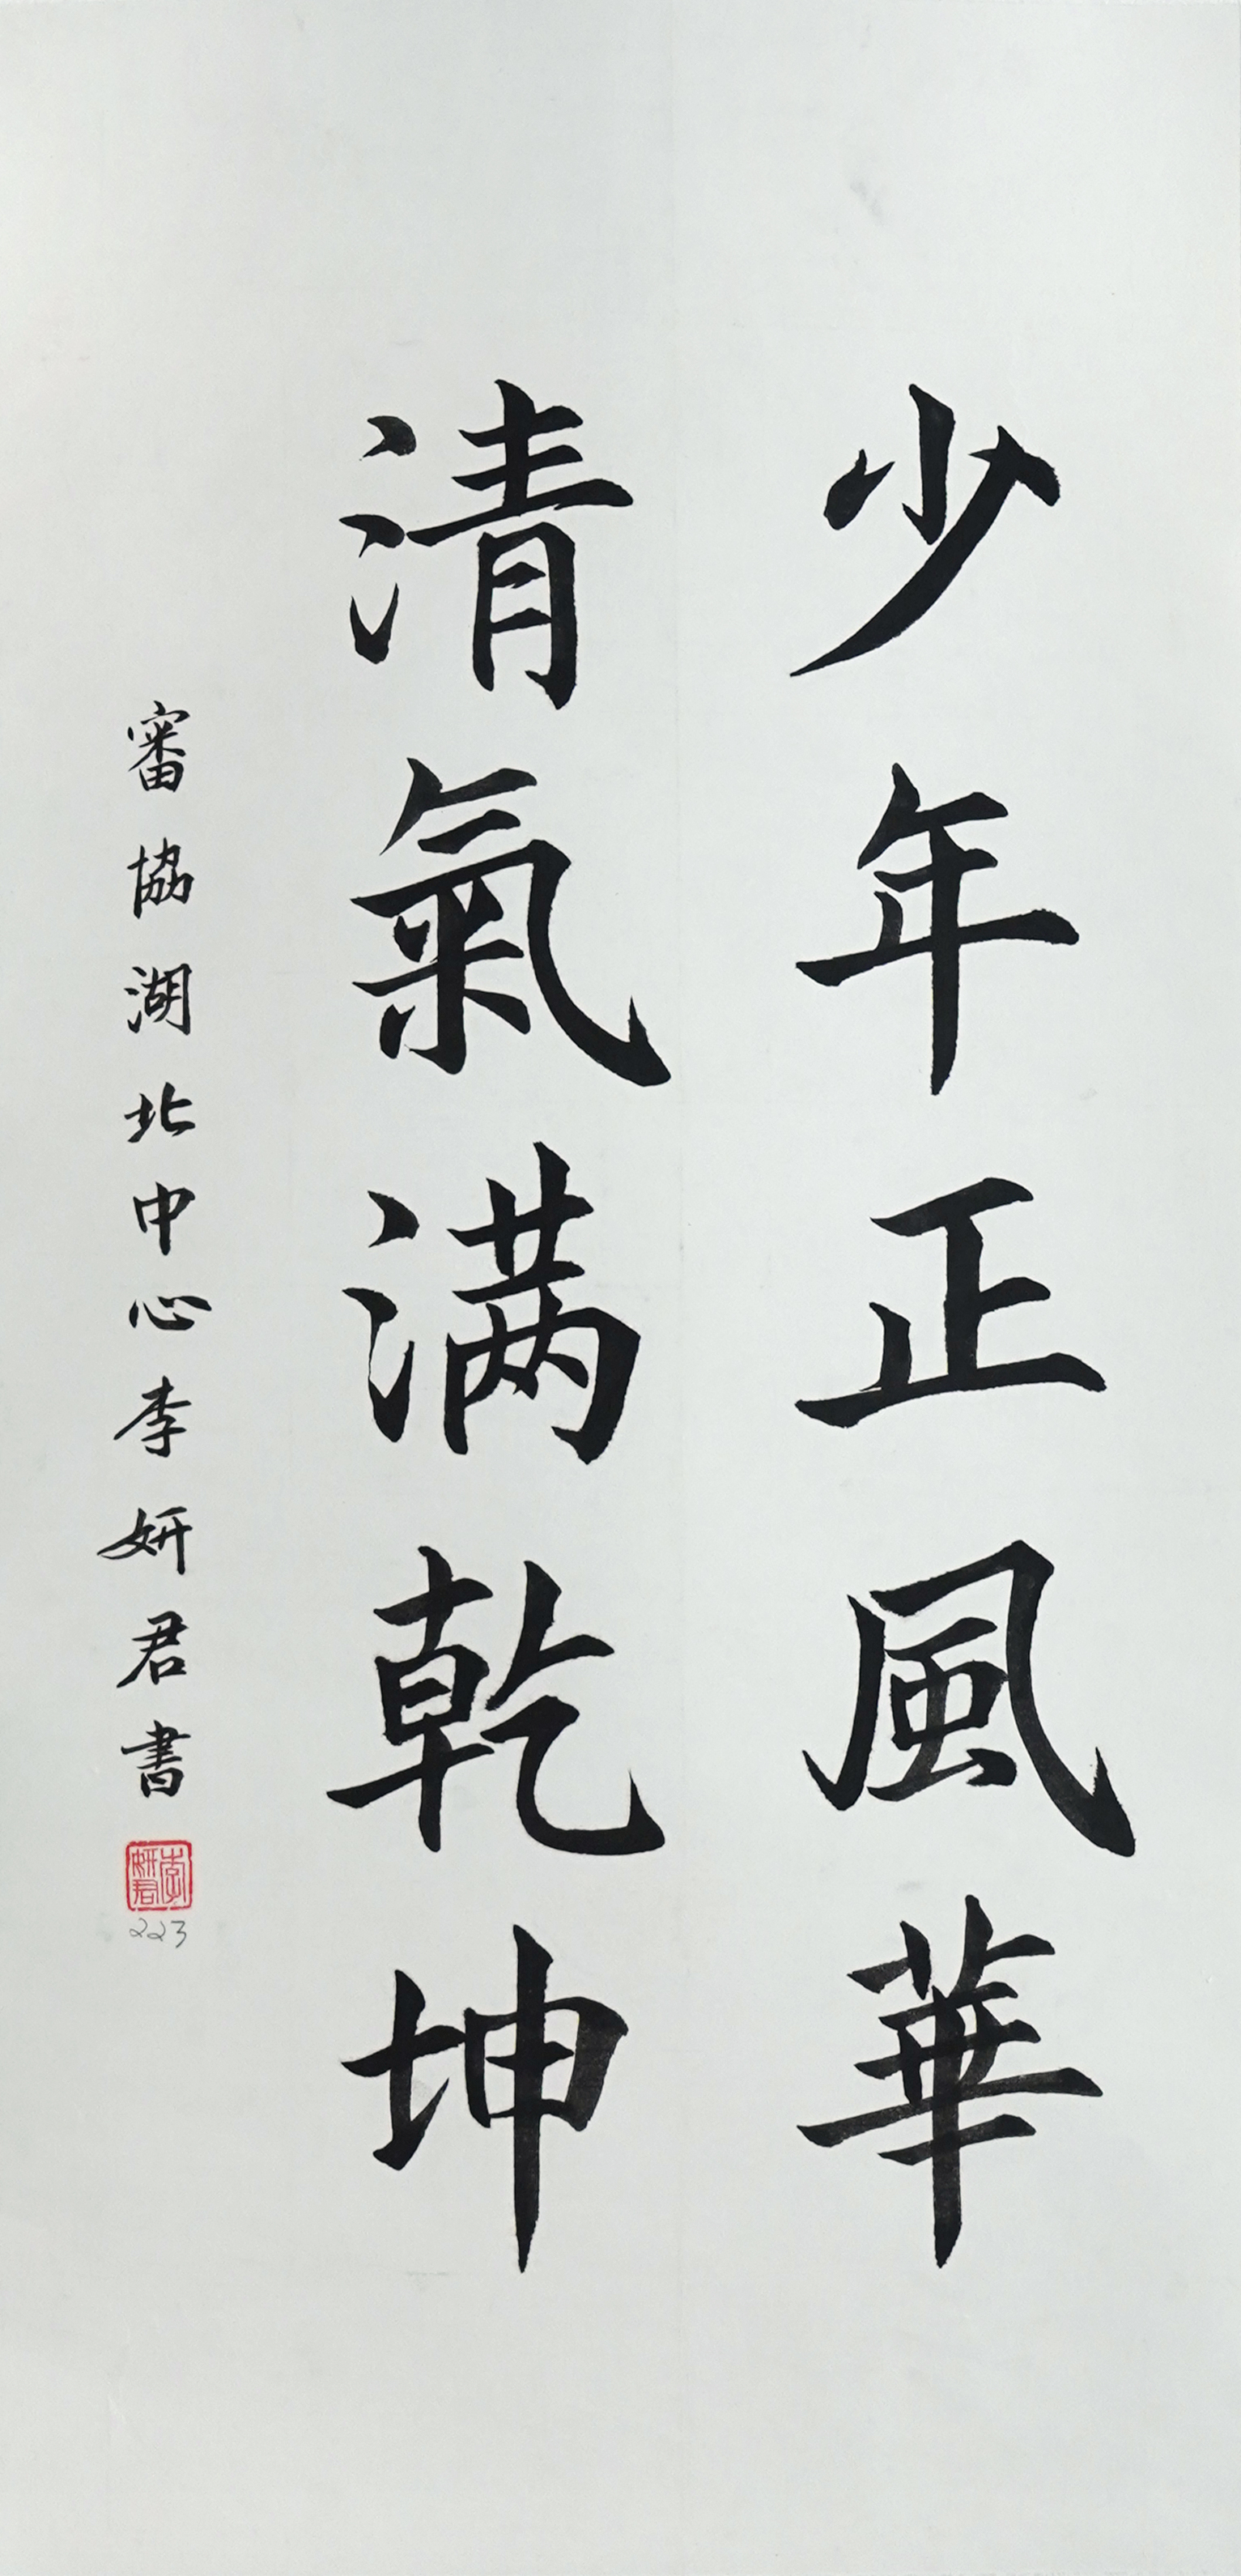 少年正風華
清氣满乾坤
審協湖北中心李妍君書
李妍君
223